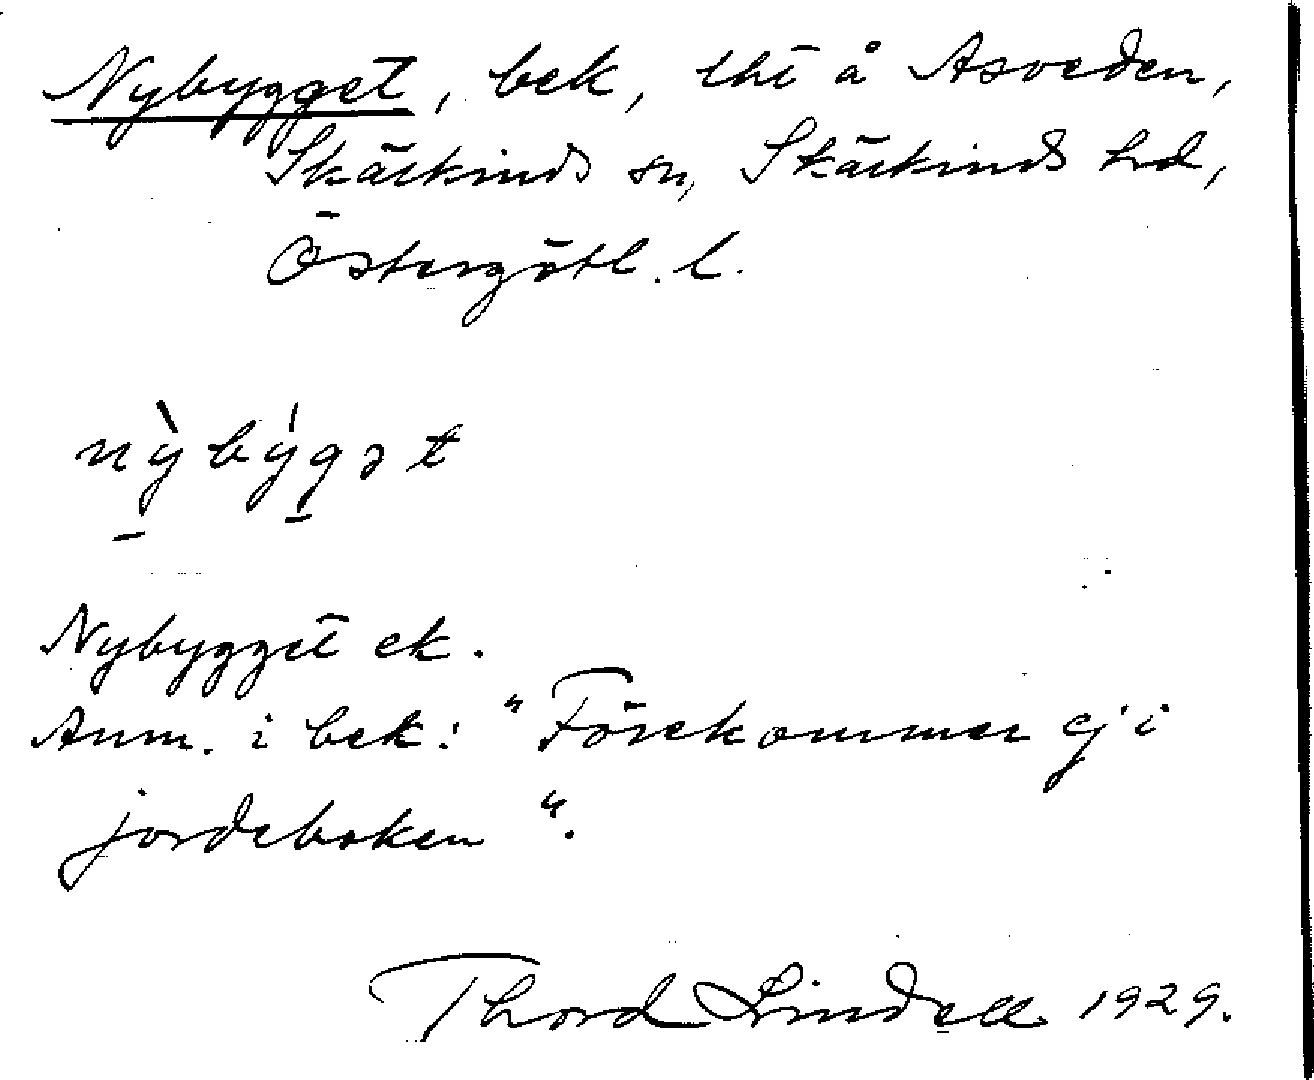 Nybygget, bek, tht å Asveden,
Skärkinds sn, Skärkinds hd,
Östergötl. l.
nỳbýgət
Nybygget ek.
Anm. i bek: "Förekommer ej i
jordeboken".
Thord Lindell 1929.